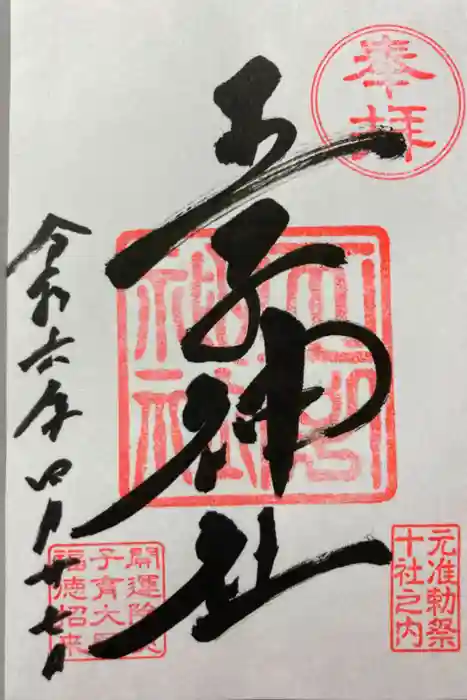 奉拝
王子神社
令和六年四月廿七日
元准勅祭
十社之内
開運除
子育大
福徳招来